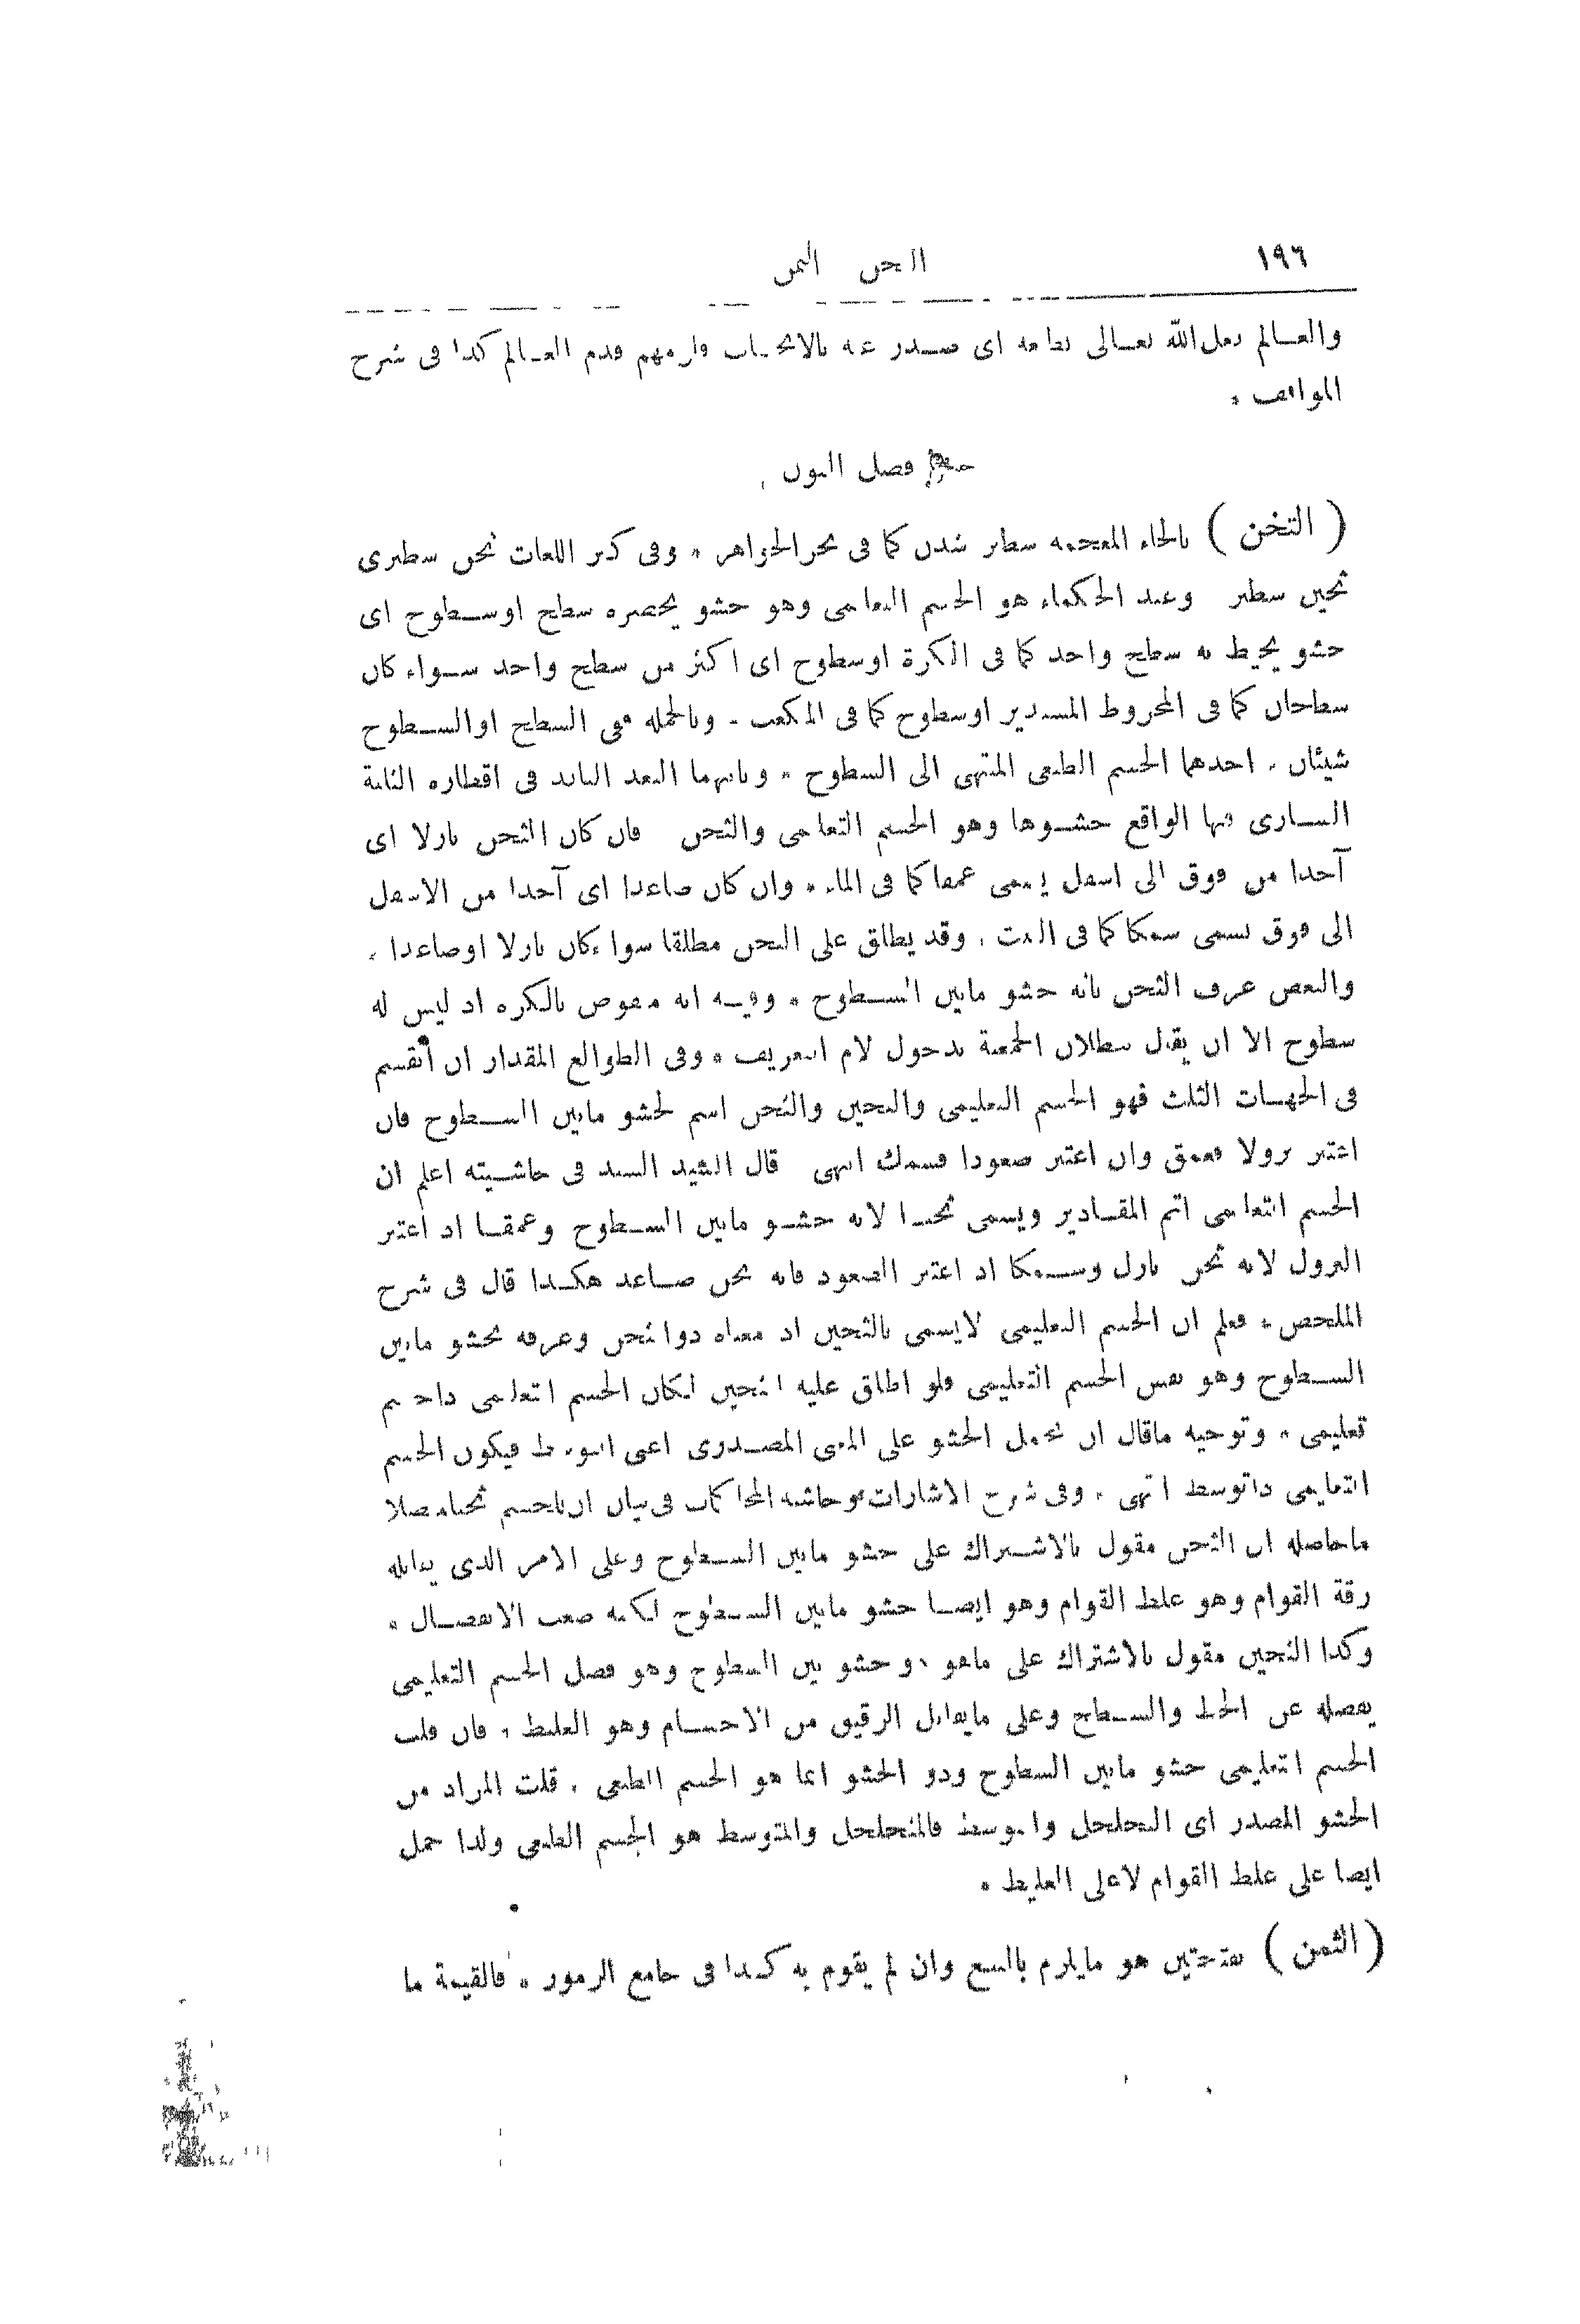 ١٩٦
الثخن الثمن
والعالم فعل الله تعالى بطبعه اى صدر عنه بالايجاب قدم العالم كذا فى شرح
المواقف *
فصل النون
( الثخن ) بالخاء المعجمه سطبر شدن كما فى بحر الجواهر * وفى كنز اللغات ثخن سطبرى
ثخين سطبر وعند الحكماء هو الجسم التعليمى وهو حشو يحصره سطح او سطوح اى
حشو يحيط به سطح واحد كما فى الكرة او سطوح اى اكثر من سطح واحد سواء كان
سطحان كما فى المخروط المستدير او سطوح كما فى المكعب * وبالجمله ففى السطح او السطوح
شيئان * احدهما الجسم الطبعى المنتهى الى السطوح * وثانيهما البعد النافذ فى اقطاره الثلثة
السارى فيها الواقع حشوها وهو الجسم التعليمى والثخن فان كان الثخن نازلا اى
آخذا من فوق الى اسفل يسمى عمقا كما فى الماء * وان كان صاعدا اى آخذا من الاسفل
الى فوق يسمى سمكا كما فى البيت * وقد يطلق على الثخن مطلقا سواء كان نازلا او صاعدا *
والبعض عرف الثخن بانه حشو مابين السطوح * وفيه انه منقوض بالكره اذ ليس له
سطوح الا ان يقال ببطلان الجمعية بدخول لام التعريف * وفى الطوالع المقدار ان انقسم
فى الجهات الثلث فهو الجسم التعليمى والثخين والثخن اسم لحشو مابين السطوح فان
اعتبر نزولا فعمق وان اعتبر صعودا فسمك انتهى قال السيد السند فى حاشيته اعلم ان
الجسم التعليمى اتم المقادير ويسمى ثخنا لانه حشو مابين السطوح وعمقا اذ اعتبر
النزول لانه ثخن نازل وسمكا اذ اعتبر الصعود فانه ثخن صاعد هكذا قال فى شرح
الملخص * فعلم ان الجسم التعليمى لايسمى بالثخين اذ معناه ذو الثخن وعرفه بحشو مابين
السطوح وهو نفس الجسم التعليمى فلو اطلق عليه الثخين لكان الجسم التعليمى ذا جسم
تعليمى * وتوجيه ماقال ان يحمل الحشو على المعنى المصدرى اعنى التوسط فيكون الجسم
التعليمى ذا توسط انتهى * وفى شرح الاشارات وحاشيه المحاكمات فى بيان ان للجسم ثخنا متصلا
ماحاصله ان الثخن مقول بالاشتراك على حشو مابين السطوح وعلى الامر الذى يقابله
رقة القوام وهو غلظ القوام وهو ايضا حشو مابين السطوح لكنه صعب الانفصال *
وكذا الثخين مقول بالاشتراك على ماهو ذو حشو بين السطوح وهو فصل الجسم التعليمى
يفصله عن الخط والسطح وعلى مايقابل الرقيق من الاجسام وهو الغليظ * فان قلت
الجسم التعليمى حشو مابين السطوح وذو الحشو انما هو الجسم الطبعى * قلت المراد من
الحشو المصدر اى التخلخل والتوسط فالمتخلخل والمتوسط هو الجسم الطبعى ولذا حمل
ايضا على غلظ القوام لا على الغليظ *
( الثمن ) بفتحتين هو مايلزم بالبيع وان لم يقوم به كذا فى جامع الرموز * فالقيمة ما